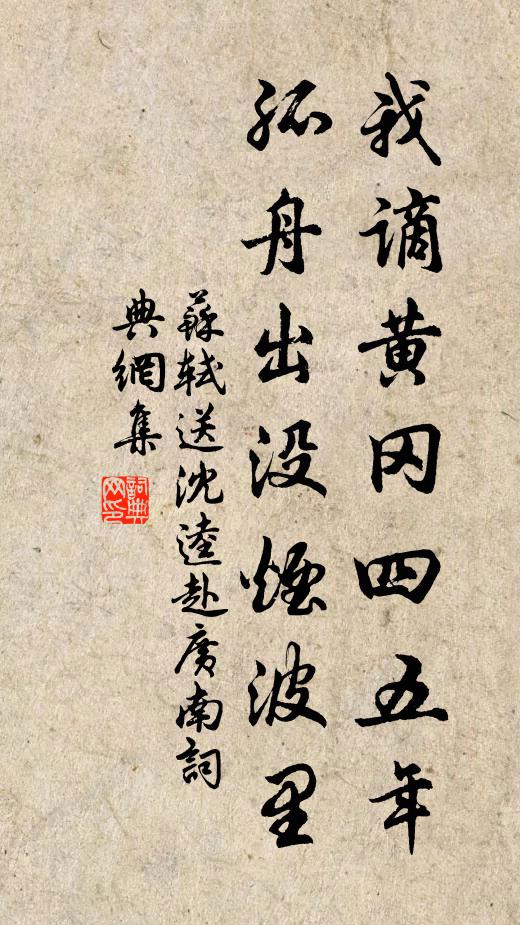 我谪黄冈四五年
孤舟出没烟波里
蘇軾送沈逵赴廣南詞
典網集
詞典
网印